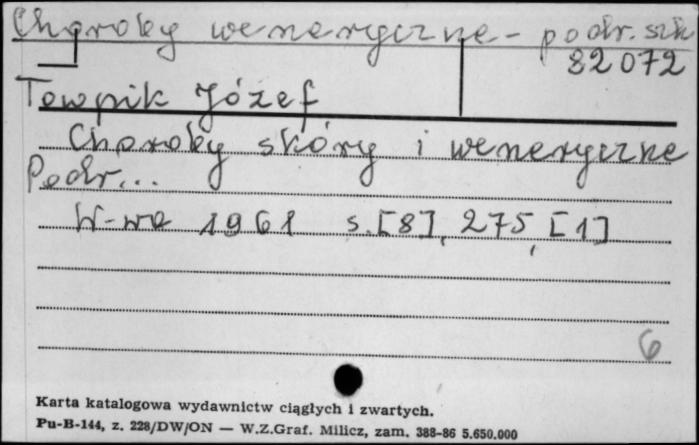 Choroby weneryczne - podr. szk
82072
Towpik Józef
Choroby skóry i weneryczne
Podr...
W-wa 1961 s. [8], 275, [1]
6
Karta katalogowa wydawnictw ciągłych i zwartych.
Pu-B-144, z. 228/DW/ON — W.Z.Graf. Milicz, zam. 388-86 5.650.000